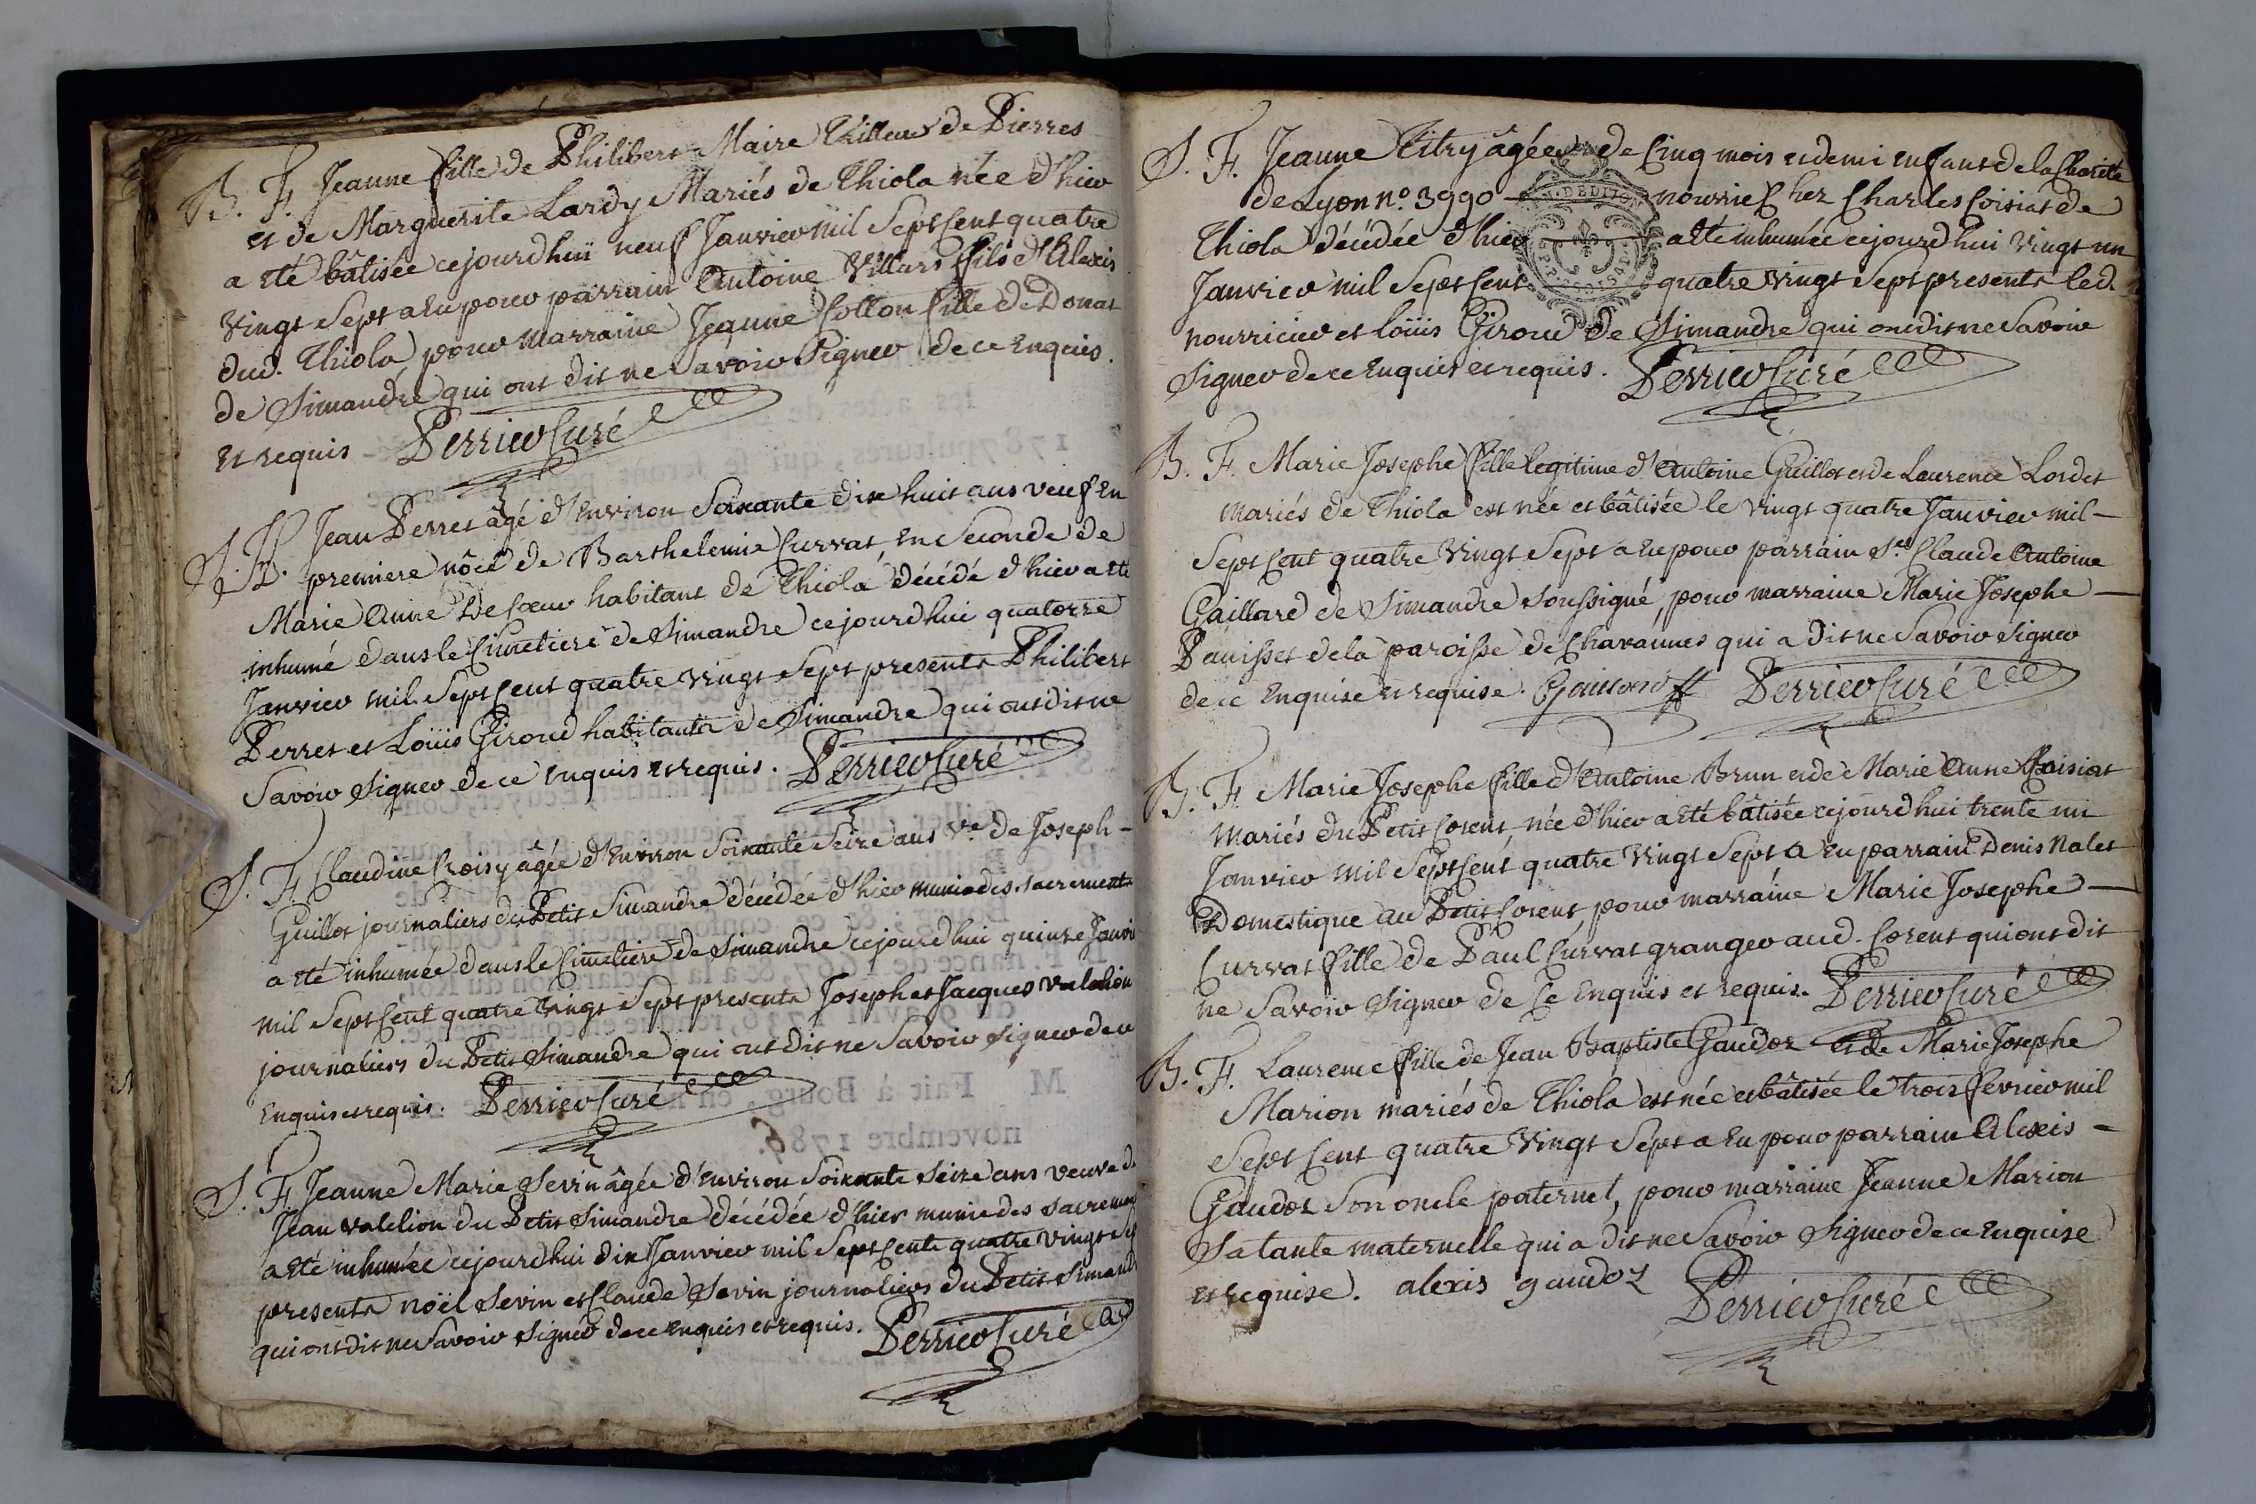 B. F. Jeanne fille de Philibert Maire Tilleur de Pierres
et de Marguerite Lardy Mariés de Thiola née d'hier
a été bâtisée cejourdhui neuf Janvier mil Sept Cent quatre
Vingt Sept a eu pour parrain Antoine Villars fils d'Alexis
dud. Thiola pour marraine Jeanne Cotton fille de Donat
de Simandre qui ont dit ne Savoir Signer de ce Enquis
et requis Perrier Curé
S. H. Jean Perret âgé d'Environ Soixante dix huit ans veuf En
premiere nôce de Barthelemie Curvat, En Seconde de
Marie Anne habitant de Thiola décédé d'hier a été
inhumé dans le Cimetiere de Simandre cejourdhui quatorze
Janvier mil Sept Cent quatre vingt Sept presents Philibert
Perret et Loüis Giroud habitants de Simandre qui ont dit ne
Savoir Signer de ce Enquis et requis. Perrier Curé
S. F. Claudine Croisy âgée d'Environ Soixante Seize ans Ve. de Joseph -
Guillot journaliers du Petit Simandre décédée d'hier munie des sacrements
a été inhumée dans le Cimetiere de Simandre cejourdhui quinze Janvi
mil Sept Cent quatre Vingt Sept presents Joseph et Jacques valelion
journaliers du Petit Simandre qui ont dit ne Savoir Signer de ce
Enquis et requis. Perrier Curé
S. F. Jeanne Marie Sevin âgée d'Environ Soixante Seize ans veuve d
Jean valelion du Petit Simandre décédée d'hier munie des sacremen
a été inhumée cejourdhui dix Janvier mil Sept Cents quatre Vingt Se
presents noël Sevin et Claude Sevin journaliers du Petit Simand
qui ont dit ne Savoir Signer de ce Enquis et requis. Perrier Curé
S. F. Jeanne Titry âgée de Cinq mois et demi enfant de la Charité
de Lyon no. 3990 nourrie Chez Charles Coisiat de
Thiola décédée d'hier a été inhumée cejourdhui Vingt un
Janvier mil Sept Cent quatre Vingt Sept presents led.
nourricier et loüis Giroud de Simandre qui ont dit ne Savoir
Signer de ce Enquis et requis. Perrier Curé
B. F. Marie Josephe fille legitime d'Antoine Guillot et de Laurence Lordet
mariés de Thiola est née et bâtisée le Vingt quatre Janvier mil -
Sept Cent quatre Vingt Sept a eu pour parrain Sr. Claude Antoine
Gaillard de Simandre Soussigné, pour marraine Marie Josephe -
de la paroisse de Chavannes qui a dit ne Savoir Signer
de ce Enquise et requise. Gaillard Perrier Curé
B. F. Marie Josephe fille d'Antoine Brun et de Marie Anne Coisiat
mariés du Petit Corent, née d'hier a été bâtisée cejourdhui trente un
Janvier mil Sept Cent quatre Vingt Sept a eu parrain Denis Nalet
Domestique au Petit Corent pour marraine Marie Josephe -
Curvat fille de Paul Curvat granger aud. Corent qui ont dit
ne Savoir Signer de Ce Enquis et requis. Perrier Curé
B. F. Laurence fille de Jean Baptiste Gaudoz et de Marie Josephe
Marion mariés de Thiola est née et bâtisée le trois fevrier mil
Sept Cent quatre Vingt Sept a eu pour parrain Alexis -
Gaudoz Son oncle paternel, pour marraine Jeanne Marion
Sa tante maternelle qui a dit ne Savoir Signer de ce Enquise
et requise. alexis gaudoz Perrier Curé